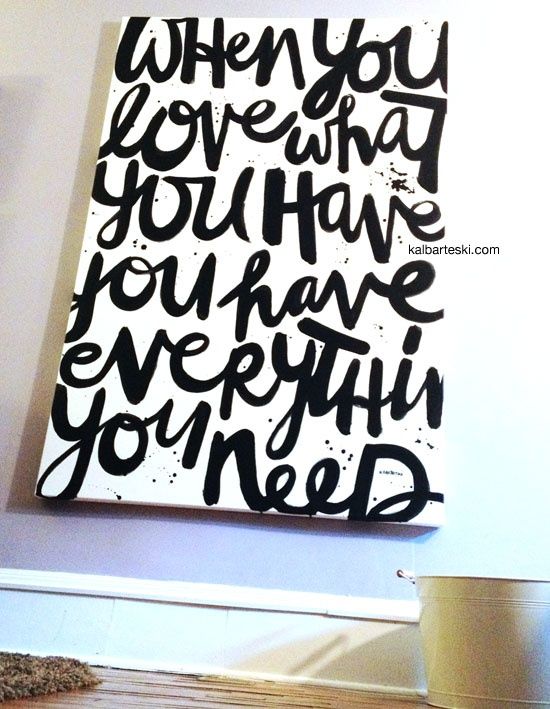 WHEN YOU
love what
YOU HAVE
you have
EVERYTHIN
you
NEED
kalbarteski.com